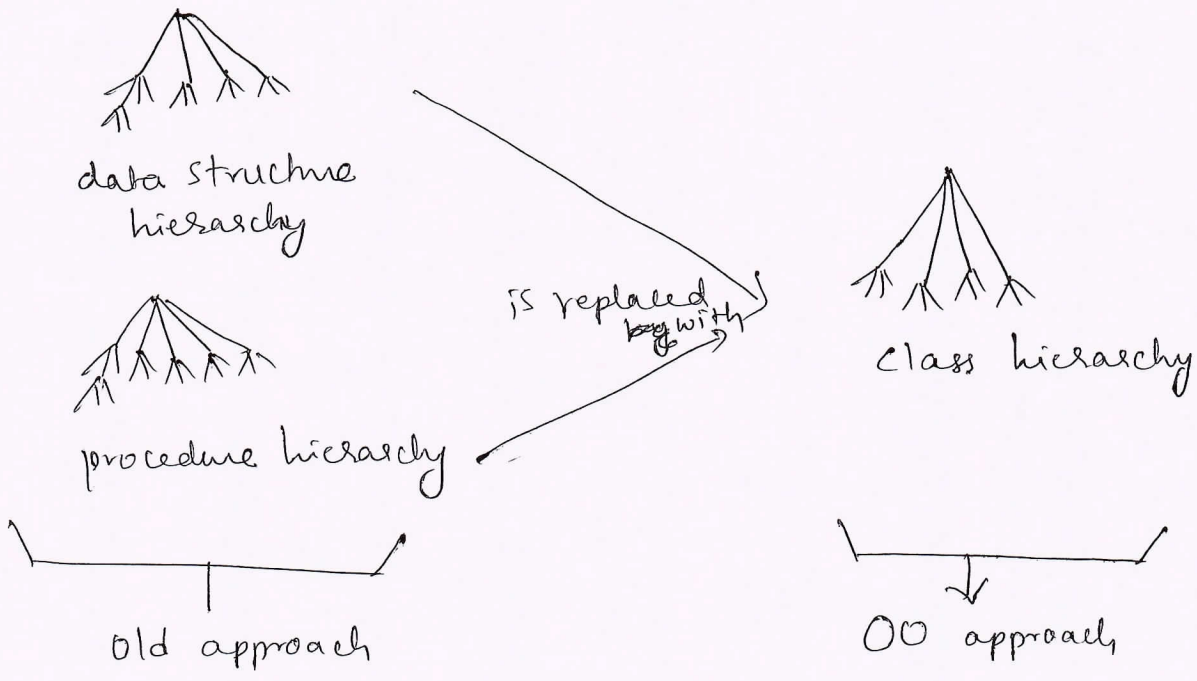 data structure
hierarchy
procedure hierarchy
is replaced
with
class hierarchy
Old approach
OO approach